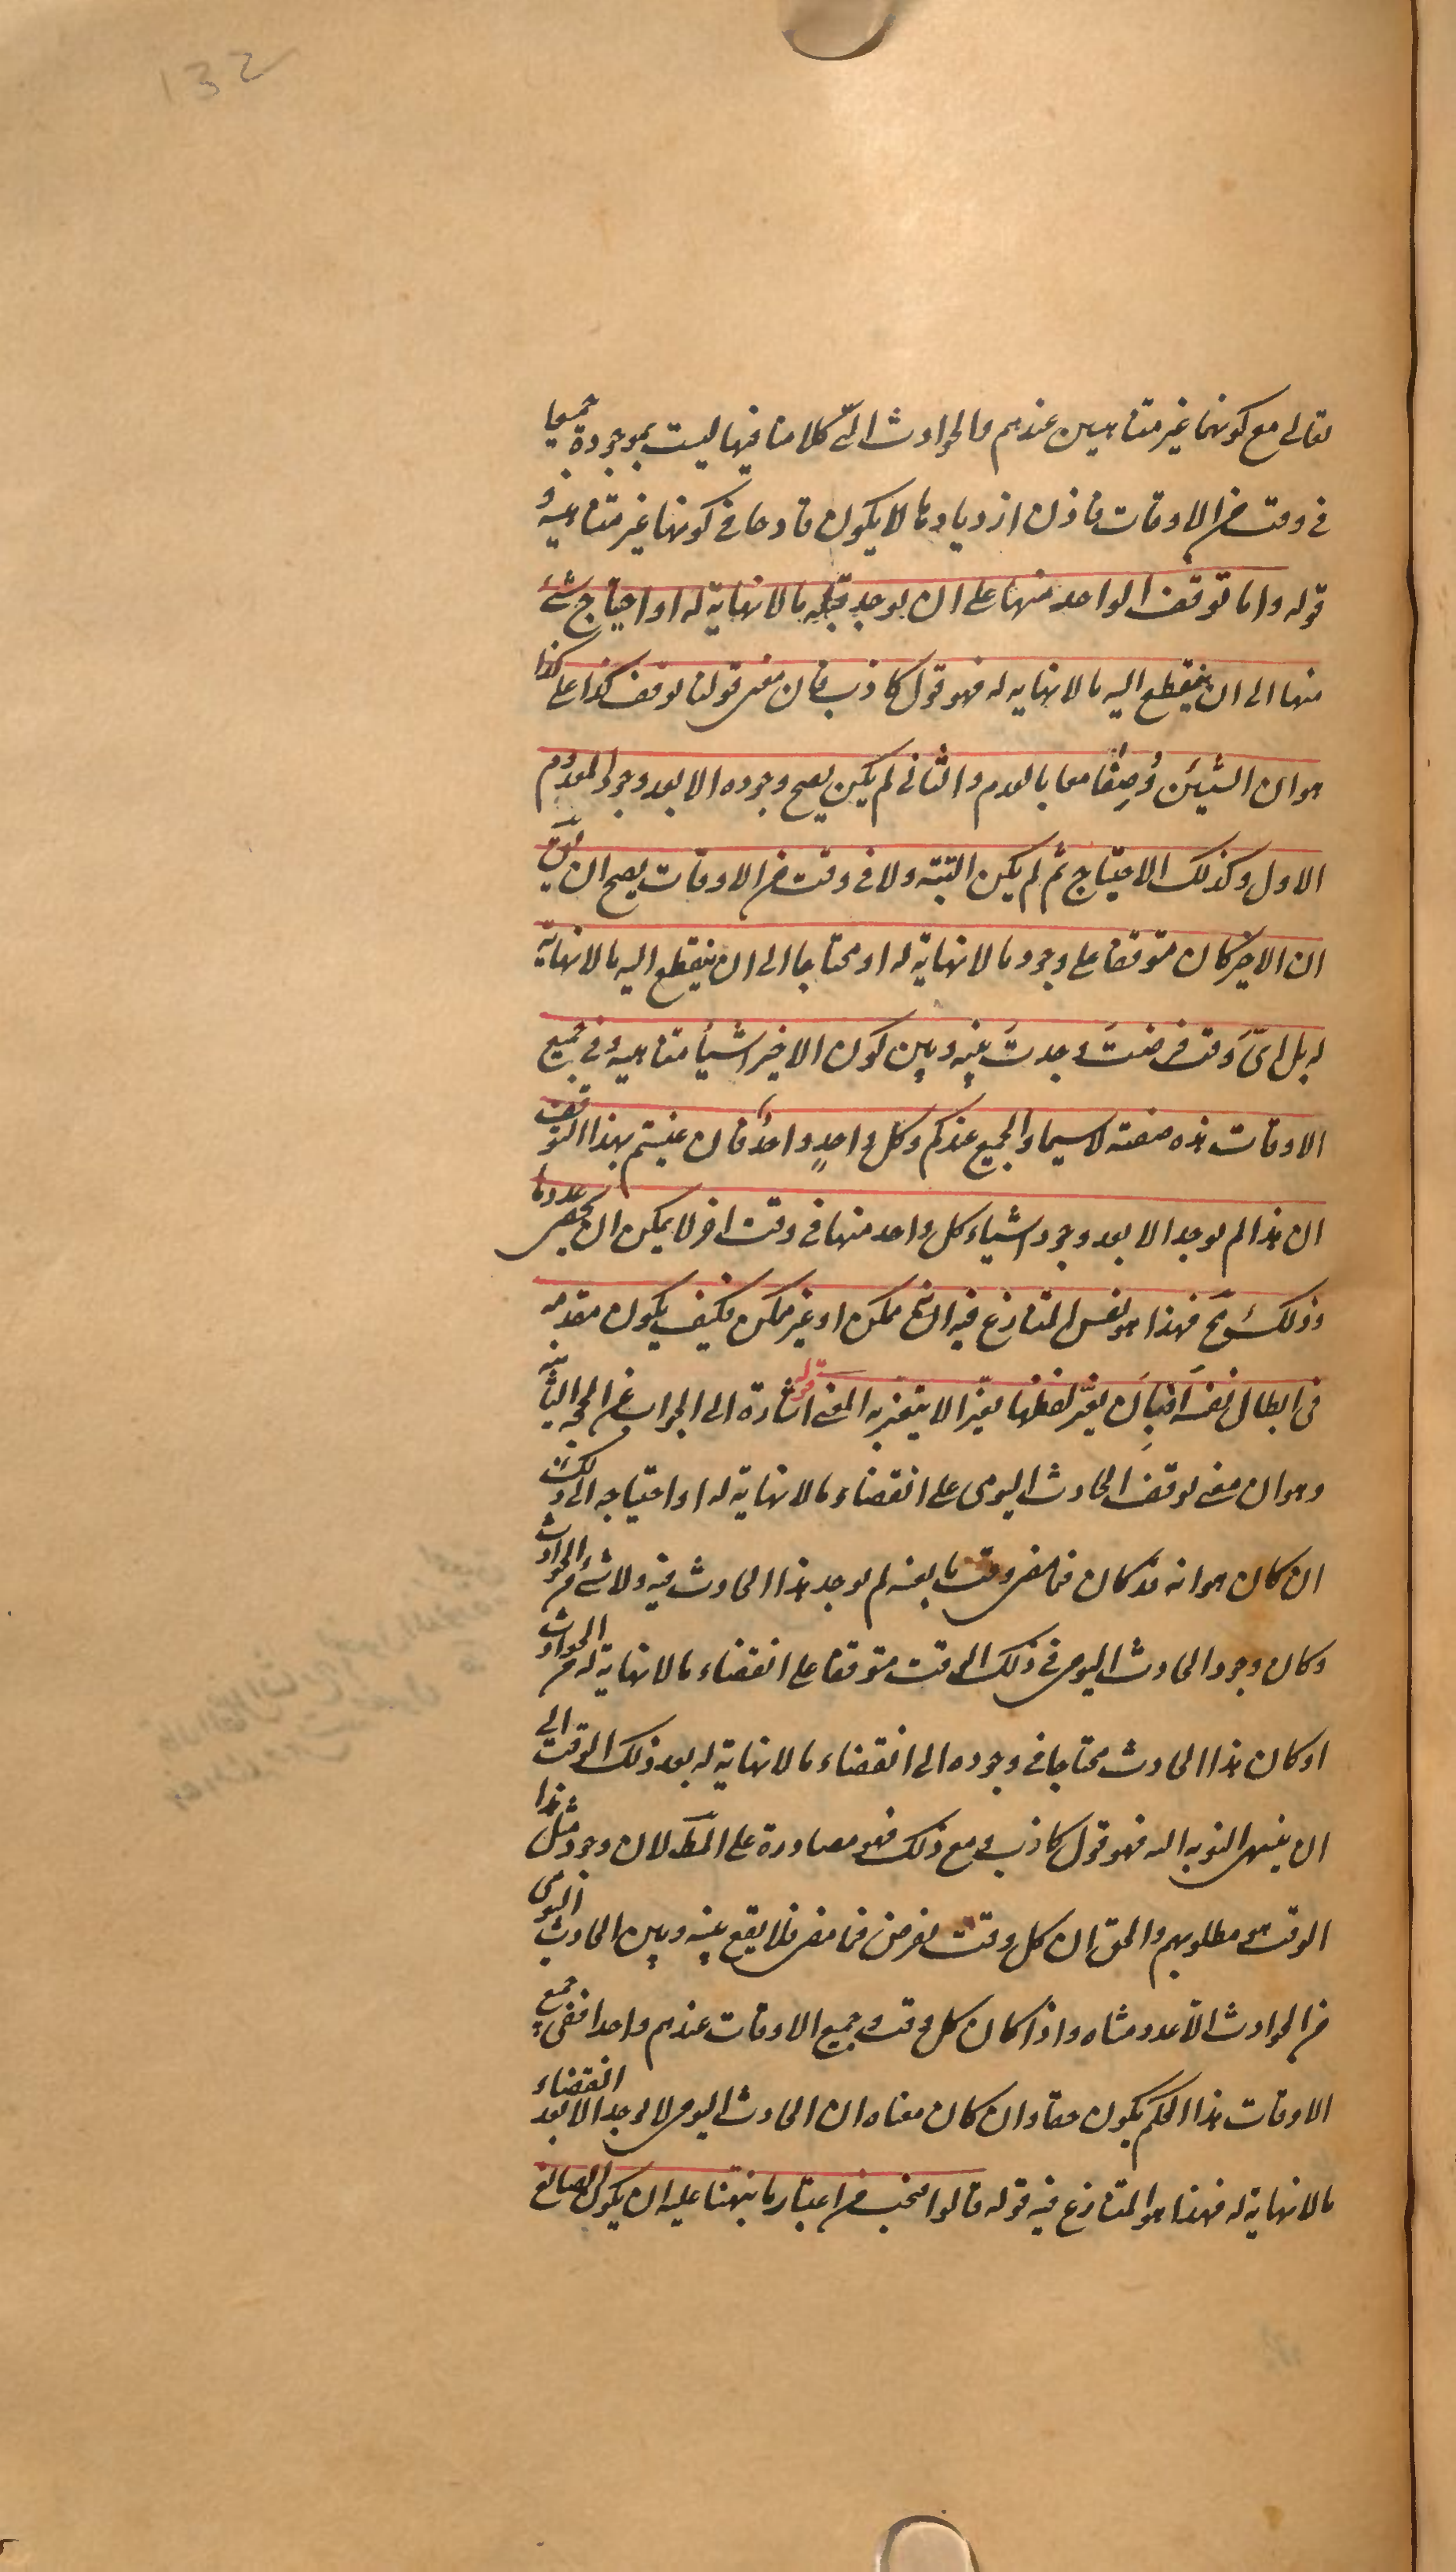 132
تعالى مع كونهما غير متناهيين عندهم والحوادث التى كلامنا فيها ليست بموجودة جميعا
فى وقت من الاوقات فاذن ازديادها لا يكون قادحا فى كونها غير متناهية
قوله واما توقف الواحد منها على ان يوجد قبله ما لا نهاية له او احتياج شئ
منها الى ان ينقطع اليه ما لا نهاية له فهو قول كاذب فان معنى قولنا توقف كذا على كذا
هو ان الشيئين وُصِفا معا بالعدم والثانى لم يكن يصح وجوده الا بعد وجود المعدوم
الاول وكذلك الاحتياج ثم لم يكن البتة ولا فى وقت من الاوقات يصح ان يق
ان الاخير كان متوقفا على وجود ما لا نهاية له او محتاجا الى ان ينقطع اليه ما لا نهاية
له بل اىَّ وقت فرضتَ وجدتَ بينه وبين كون الاخير اشياء متناهية وفى جميع
الاوقات هذه صفته لا سيما والجميع عندكم وكل واحدٍ واحدٌ فان عنيتم بهذا التوقف
ان هذا لم يوجد الا بعد وجود اشياء كل واحد منها فى وقت اخر لا يمكن ان يحصى عددها
وذلك مح فهذا هو نفس المتنازع فيه انه ممكن او غير ممكن فكيف يكون مقدمه
فى ابطال نفسه ابِان يغيّر لفظها تغيّرا لا يتغير به المعنى قوله اشارة الى الجواب عن الحجه الثانية
وهو ان معنى توقف الحادث اليومى على انقضاء ما لا نهاية له او احتياجه الى ذلك
ان كان هو انه قد كان فيما مضى وقت ما بعينه لم يوجد هذا الحادث فيه ولا شئ من الحوادث
وكان وجود الحادث اليومى فى ذلك الوقت متوقفا على انقضاء ما لا نهاية له من الحوادث
او كان هذا الحادث محتاجا فى وجوده الى انقضاء ما لا نهاية له بعد ذلك الوقت الى
ان ينتهى النوبه اليه فهو قول كاذب ومع ذلك فهو مصادرة على المط لان وجود مثل هذا
الوقت هو مطلوبهم والحق ان كل وقت يفرض فيما مضى فلا يقع بينه وبين الحادث اليومى
من الحوادث الا عدد متناه واذا كان كل وقت وجميع الاوقات عندهم واحدا ففى جميع
الاوقات هذا الحكم يكون حقا وان كان معناه ان الحادث اليومى لا يوجد الا بعد انقضاء
ما لا نهاية له فهذا هو المتنازع فيه قوله قالوا فيجب من اعتبار ما نبهنا عليه ان يكون الصانع